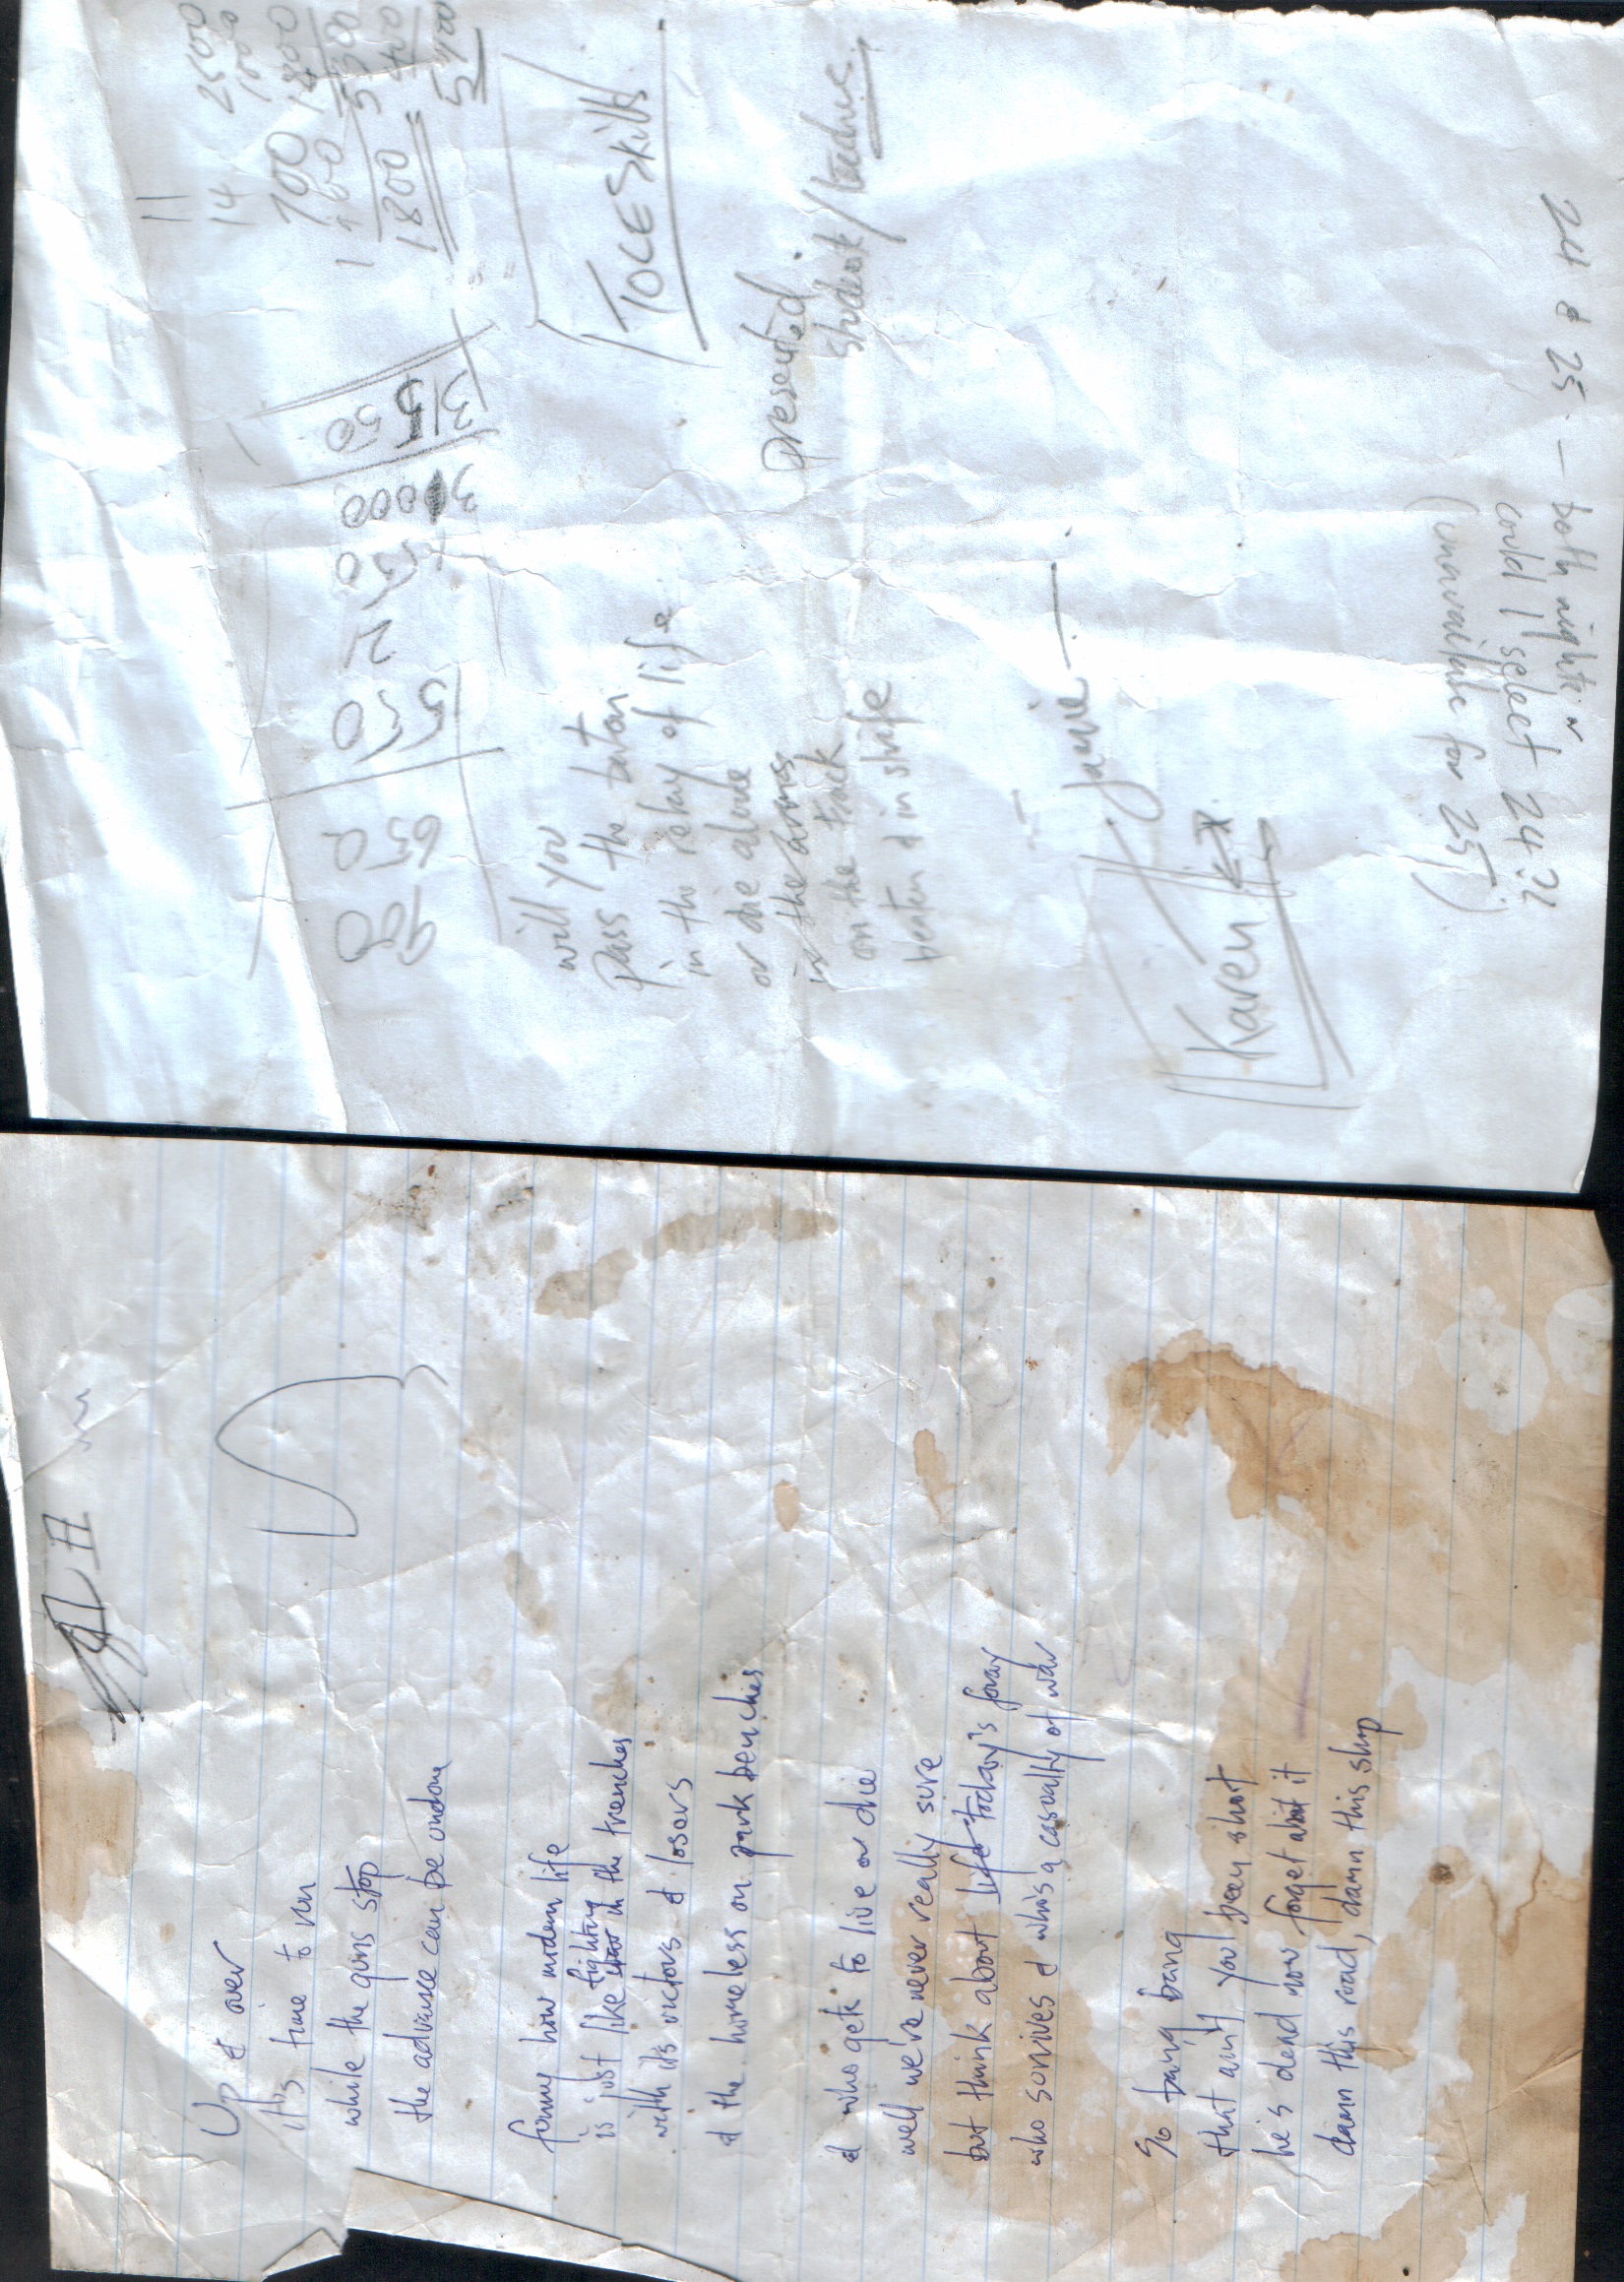 Up & over
it's time to run
while the guns stop
the advance can be undone
funny how modern life
is just like fighting in the trenches
with it's victors & losers
& the homeless on park benches
& who gets to live or die
well we're never really sure
but think about life today's foray
who survives & who's a casualty of war
so bang bang
that ain't you been shot
he's dead now forget about it
damn this road, damn this ship
11
14 2500
700
1800
5400
900
650
550
3000
50
TOLE Skills
will you
pass the baton
in the relay of life
or die alone
in the arms
on the track
beaten & in strife
presented
student/teacher
Jamie
Karen
24 & 25 — both nights"
could I select 24?
(unavailable for 25)